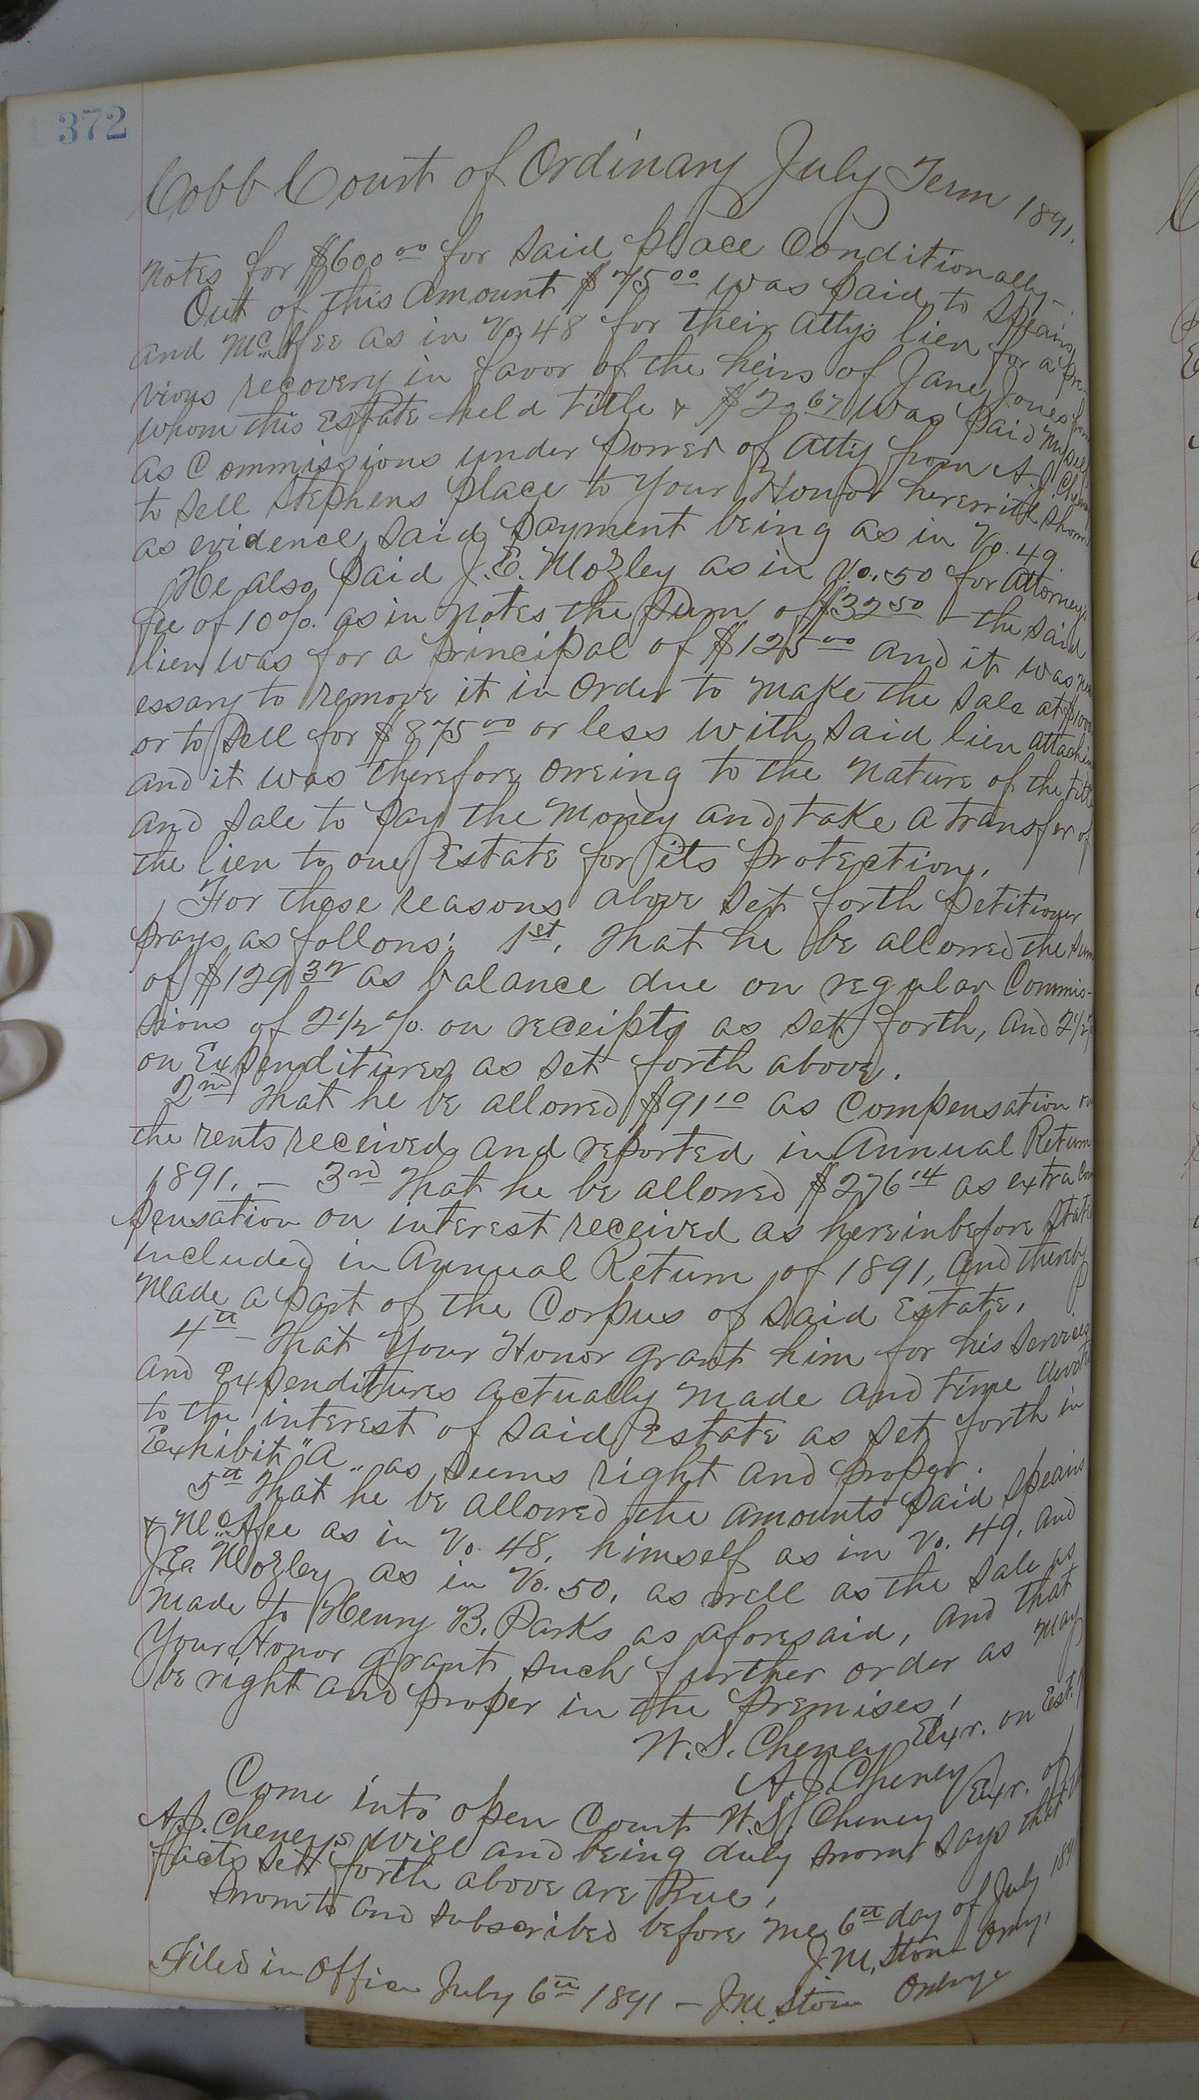 372
Cobb Court of Ordinary July Term 1891.
Notes for $600 00 for said place Conditionally-
Out of this amount $75 00 was paid to Speairs
and McAfee as in Vo. 48 for their attys lien for a pre-
vious recovery in favor of the heirs of Jane Jones from
whom this Estate held title & $22 67 was paid myself
as Commissions under power of atty from A. J. Cheney
to sell Stephens place to Your Honor herewith shown
as evidence, said payment being as in Vo. 49
He also paid J. E. Mozley as in Vo. 50 for attorneys
fee of 10%. as in Notes the sum of $32 50 - the said
lien was for a principal of $125 00 and it was nec
essary to remove it in order to make the sale at $1000
or to sell for $875 00 or less with said lien attaching
and it was therefore oweing to the nature of the title
and sale to pay the money and take a transfer of
the lien to one Estate for its protection.
For these reasons above set forth petitioner
prays as follows: 1st. That he be allowed the sum
of $129 32 as balance due on regular Commis-
sions of 2 1/2 %. on receipts as set forth, and 2 1/2 %
on Expenditures as set forth above.
2nd That he be allowed $91 10 as Compensation on
the rents received and reported in Annual Return
1891. - 3rd That he be allowed $276 14 as extra com
pensation on interest received as hereinbefore stated
included in Annual Return of 1891, and thereby
Made a part of the Corpus of said Estate.
4th - That Your Honor grant him for his services
and Expenditures actually made and time devoted
to the interest of said Estate as set forth in
Exhibit "A" as seems right and proper.
5th That he be allowed the amounts paid Speairs
& McAfee as in Vo. 48, himself as in Vo. 49, and
J. E. Mozley as in Vo. 50, as well as the sale as
made to Henry B. Parks as aforesaid, and that
Your Honor grant such further order as may
be right and proper in the premises.
W. S. Cheney Exr. on Est.
A. J. Cheney
Come into open Court W. S. Cheney Exr. of
A. J. Cheney's will and being duly sworn says that
facts sett forth above are true.
Sworn to and subscribed before me 6th day of July 1891
J. M. Stone Ordny.
Filed in Office July 6th 1891 - J. M. Stone Ordny